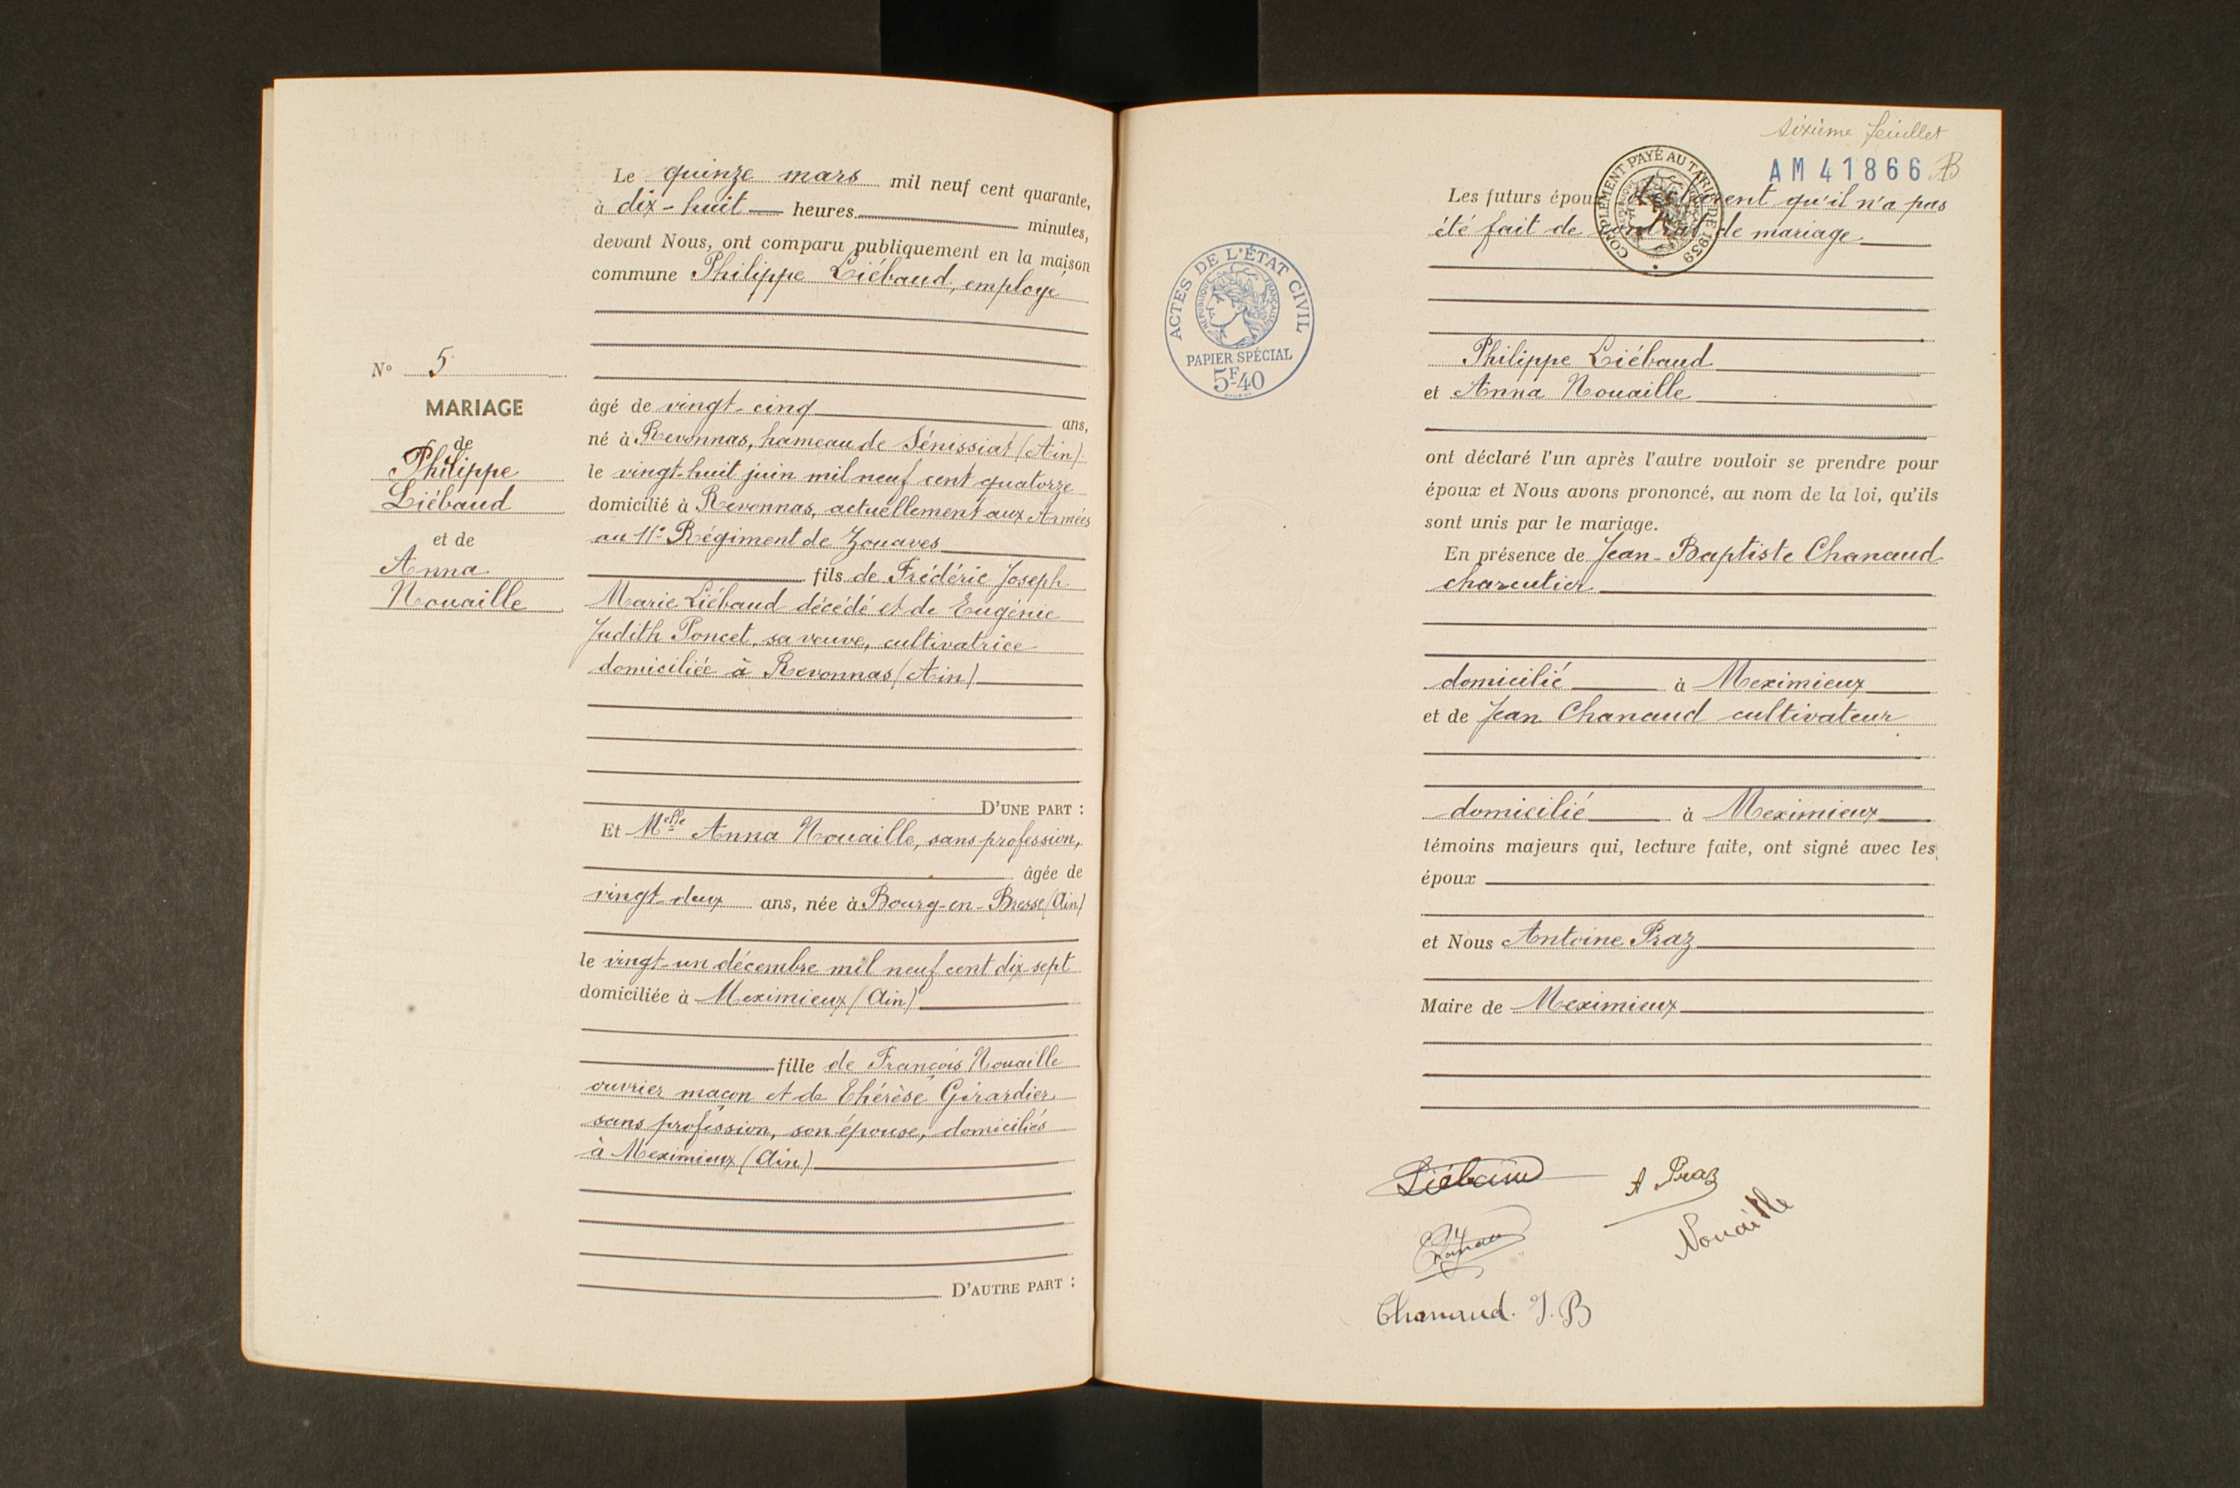 Le quinze mars mil neuf cent quarante,
à dix-huit heures minutes,
devant Nous, ont comparu publiquement en la maison
commune Philippe Liébaud, employé
N° 5
MARIAGE
de
Philippe
Liébaud
et de
Anna
Nouaille
âgé de vingt-cinq ans,
né à Revonnas, hameau de Sénissiat (Ain)
le vingt-huit juin mil neuf cent quatorze
domicilié à Revonnas, actuellement aux Armées
au 11e Régiment de Zouaves
fils de Frédéric Joseph
Marie Liébaud décédé et de Eugénie
Judith Poncet, sa veuve, cultivatrice
domiciliée à Revonnas (Ain)
D'UNE PART :
Et Melle Anna Nouaille, sans profession,
âgée de
vingt-deux ans, née à Bourg-en-Bresse (Ain)
le vingt-un décembre mil neuf cent dix-sept
domiciliée à Meximieux (Ain)
fille de François Nouaille
ouvrier maçon et de Thérèse Girardier
sans profession, son épouse, domiciliés
à Meximieux (Ain)
D'AUTRE PART :
sixième feuillet
AM 41866 B
COMPLÉMENT PAYÉ AU TARIF DE 1939
ACTES DE L'ÉTAT CIVIL
RÉPUBLIQUE FRANÇAISE
PAPIER SPÉCIAL
5F40
Les futurs époux déclarent qu'il n'a pas
été fait de contrat de mariage
Philippe Liébaud
et Anna Nouaille
ont déclaré l'un après l'autre vouloir se prendre pour
époux et Nous avons prononcé, au nom de la loi, qu'ils
sont unis par le mariage.
En présence de Jean-Baptiste Chanaud
charcutier
domicilié à Meximieux
et de Jean Chanaud cultivateur
domicilié à Meximieux
témoins majeurs qui, lecture faite, ont signé avec les
époux
et Nous Antoine Praz
Maire de Meximieux
Liébaud
A Praz
Nouaille
Chanaud. J.B